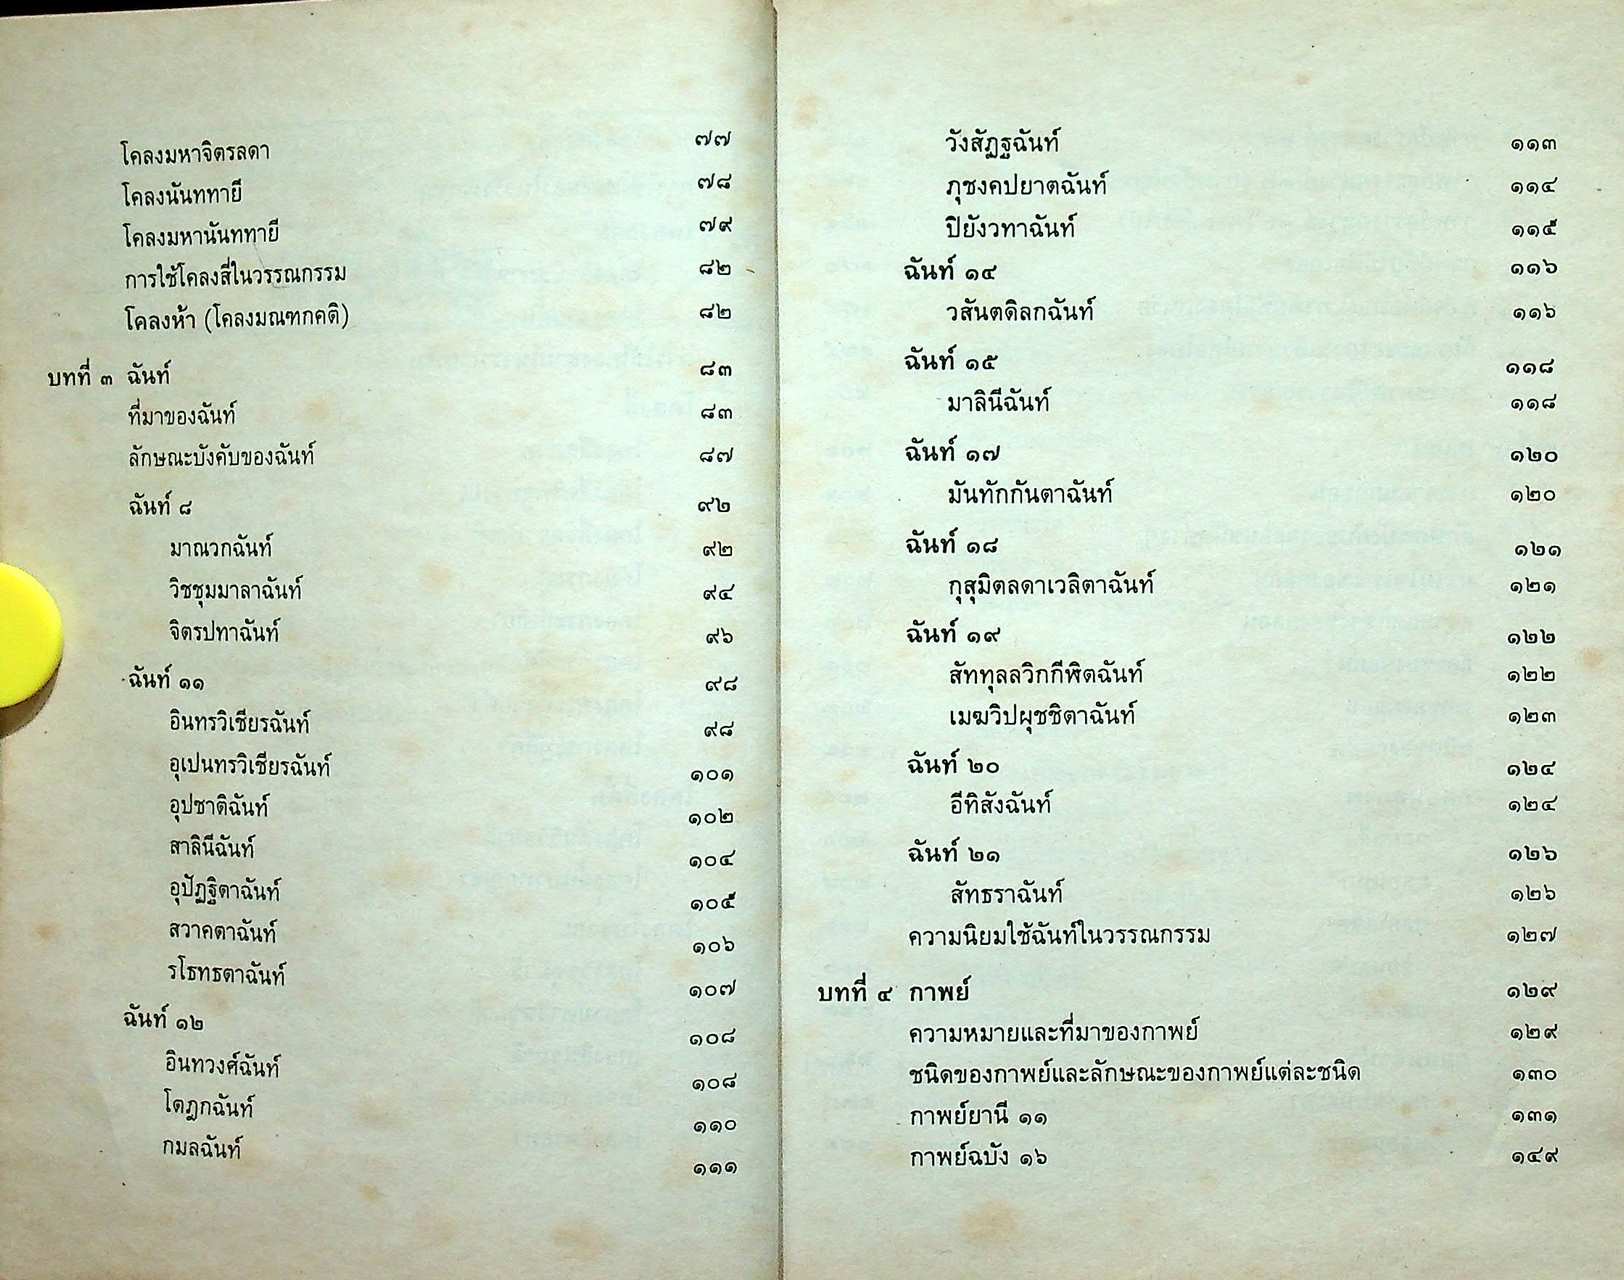 โคลงมหาจิตรลดา ๗๗
โคลงนันททายี ๗๘
โคลงมหานันททายี ๗๙
การใช้โคลงสี่ในวรรณกรรม ๘๒
โคลงห้า (โคลงมณฑกคติ) ๘๒
บทที่ ๓ ฉันท์ ๘๓
ที่มาของฉันท์ ๘๓
ลักษณะบังคับของฉันท์ ๘๗
ฉันท์ ๘ ๙๒
มาณวกฉันท์ ๙๒
วิชชุมมาลาฉันท์ ๙๔
จิตรปทาฉันท์ ๙๖
ฉันท์ ๑๑ ๙๘
อินทรวิเชียรฉันท์ ๙๘
อุเปนทรวิเชียรฉันท์ ๑๐๑
อุปชาติฉันท์ ๑๐๒
สาลินีฉันท์ ๑๐๔
อุปัฏฐิตาฉันท์ ๑๐๕
สวาคตาฉันท์ ๑๐๖
รโธทธตาฉันท์ ๑๐๗
ฉันท์ ๑๒ ๑๐๘
อินทวงศ์ฉันท์ ๑๐๘
โตฎกฉันท์ ๑๑๐
กมลฉันท์ ๑๑๑
วังสัฏฐฉันท์ ๑๑๓
ภุชงคปยาตฉันท์ ๑๑๔
ปิยังวทาฉันท์ ๑๑๕
ฉันท์ ๑๔ ๑๑๖
วสันตดิลกฉันท์ ๑๑๖
ฉันท์ ๑๕ ๑๑๘
มาลินีฉันท์ ๑๑๘
ฉันท์ ๑๗ ๑๒๐
มันทักกันตาฉันท์ ๑๒๐
ฉันท์ ๑๘ ๑๒๑
กุสุมิตลดาเวลิตาฉันท์ ๑๒๑
ฉันท์ ๑๙ ๑๒๒
สัททุลลวิกกีฬิตฉันท์ ๑๒๒
เมฆวิปผุชชิตาฉันท์ ๑๒๓
ฉันท์ ๒๐ ๑๒๔
อีทิสังฉันท์ ๑๒๔
ฉันท์ ๒๑ ๑๒๖
สัทธราฉันท์ ๑๒๖
ความนิยมใช้ฉันท์ในวรรณกรรม ๑๒๗
บทที่ ๔ กาพย์ ๑๒๙
ความหมายและที่มาของกาพย์ ๑๒๙
ชนิดของกาพย์และลักษณะของกาพย์แต่ละชนิด ๑๓๐
กาพย์ยานี ๑๑ ๑๓๑
กาพย์ฉบัง ๑๖ ๑๔๙